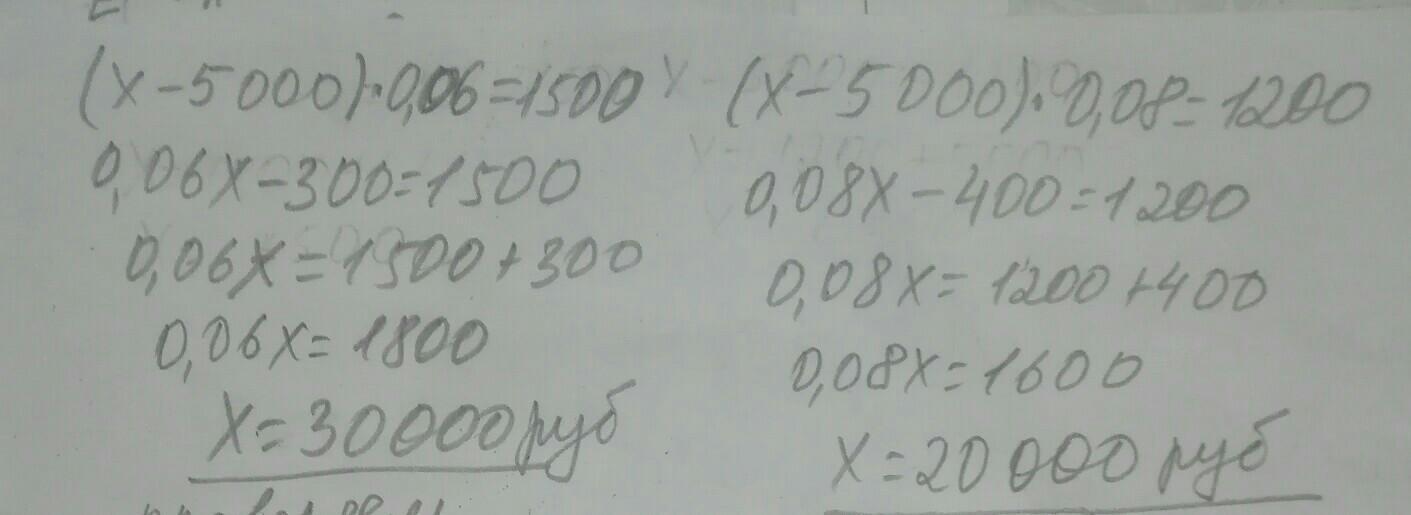 (x-5000)·0,06=1500
0,06x-300=1500
0,06x=1500+300
0,06x=1800
x=30000руб
(x-5000)·0,08=1200
0,08x-400=1200
0,08x=1200+400
0,08x=1600
x=20000руб